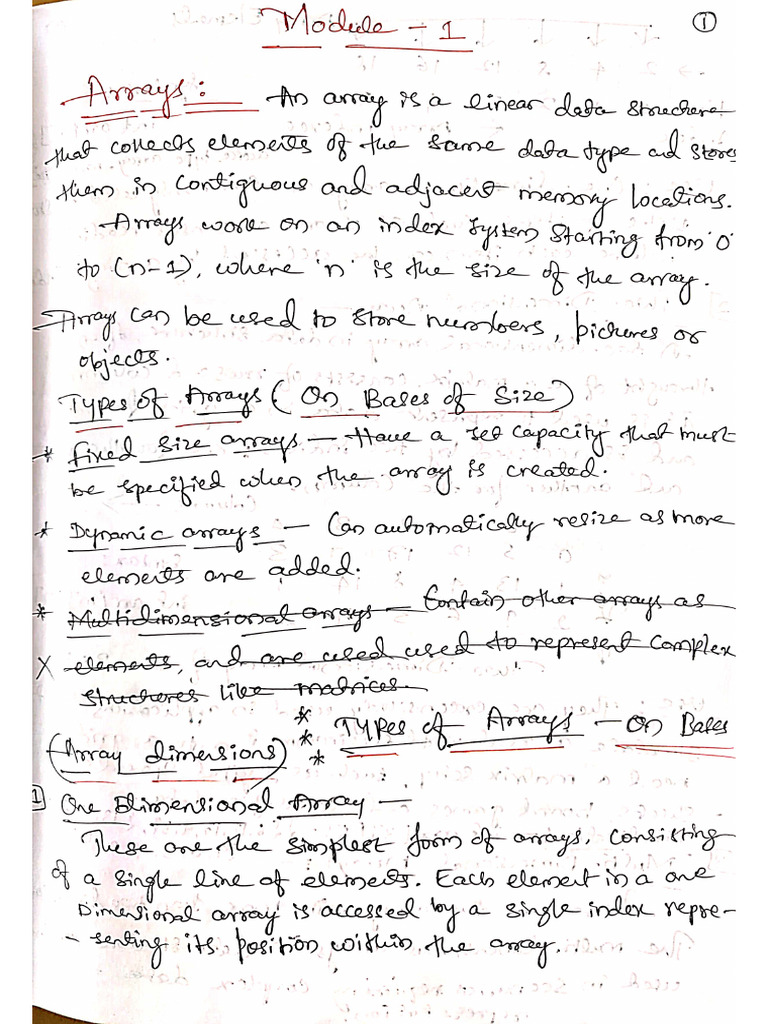 Module - 1
①
Arrays: An array is a linear data structure
that collects elements of the same data type ad stores
them in contiguous and adjacent memory locations.
Arrays work on an index system starting from '0'
to (n-1), where 'n' is the size of the array.
Arrays can be used to store numbers, pictures or
objects.
Types of Arrays (On Bases of Size)
* Fixed size arrays - Have a set capacity that must
be specified when the array is created.
* Dynamic arrays - Can automatically resize as more
elements are added.
* Multidimensional arrays - Contain other arrays as
X elements, and are used used to represent complex
structures like matrices.
*** Types of Arrays - On Bases
(Array dimensions)
1 One Dimensional Array -
These are the simplest form of arrays, consisting
of a single line of elements. Each element in a one
Dimensional array is accessed by a single index repre-
- senting its position within the array.